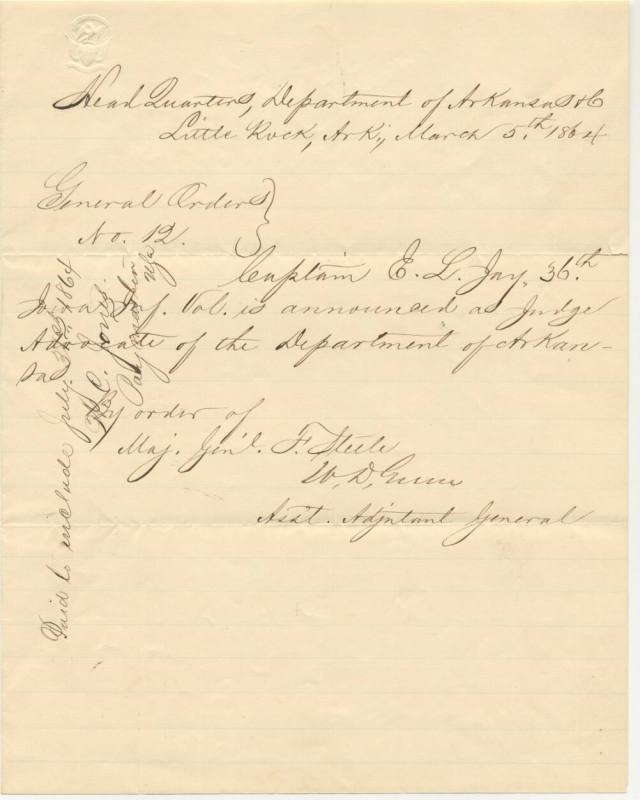 Head Quarters, Department of Arkansas &C
Little Rock, Ark., March 5.th 1864
General Orders
No. 12.
Captain E. L. Joy, 36.th
Iowa Inf. Vol. is announced as Judge
Advocate of the Department of Arkan-
sas
By order of
Maj. Gen'l. F. Steele
W. D. Green
Ass't. Adjutant General
Paid to include July 31st 1864
C. Jones
Paymaster
USA